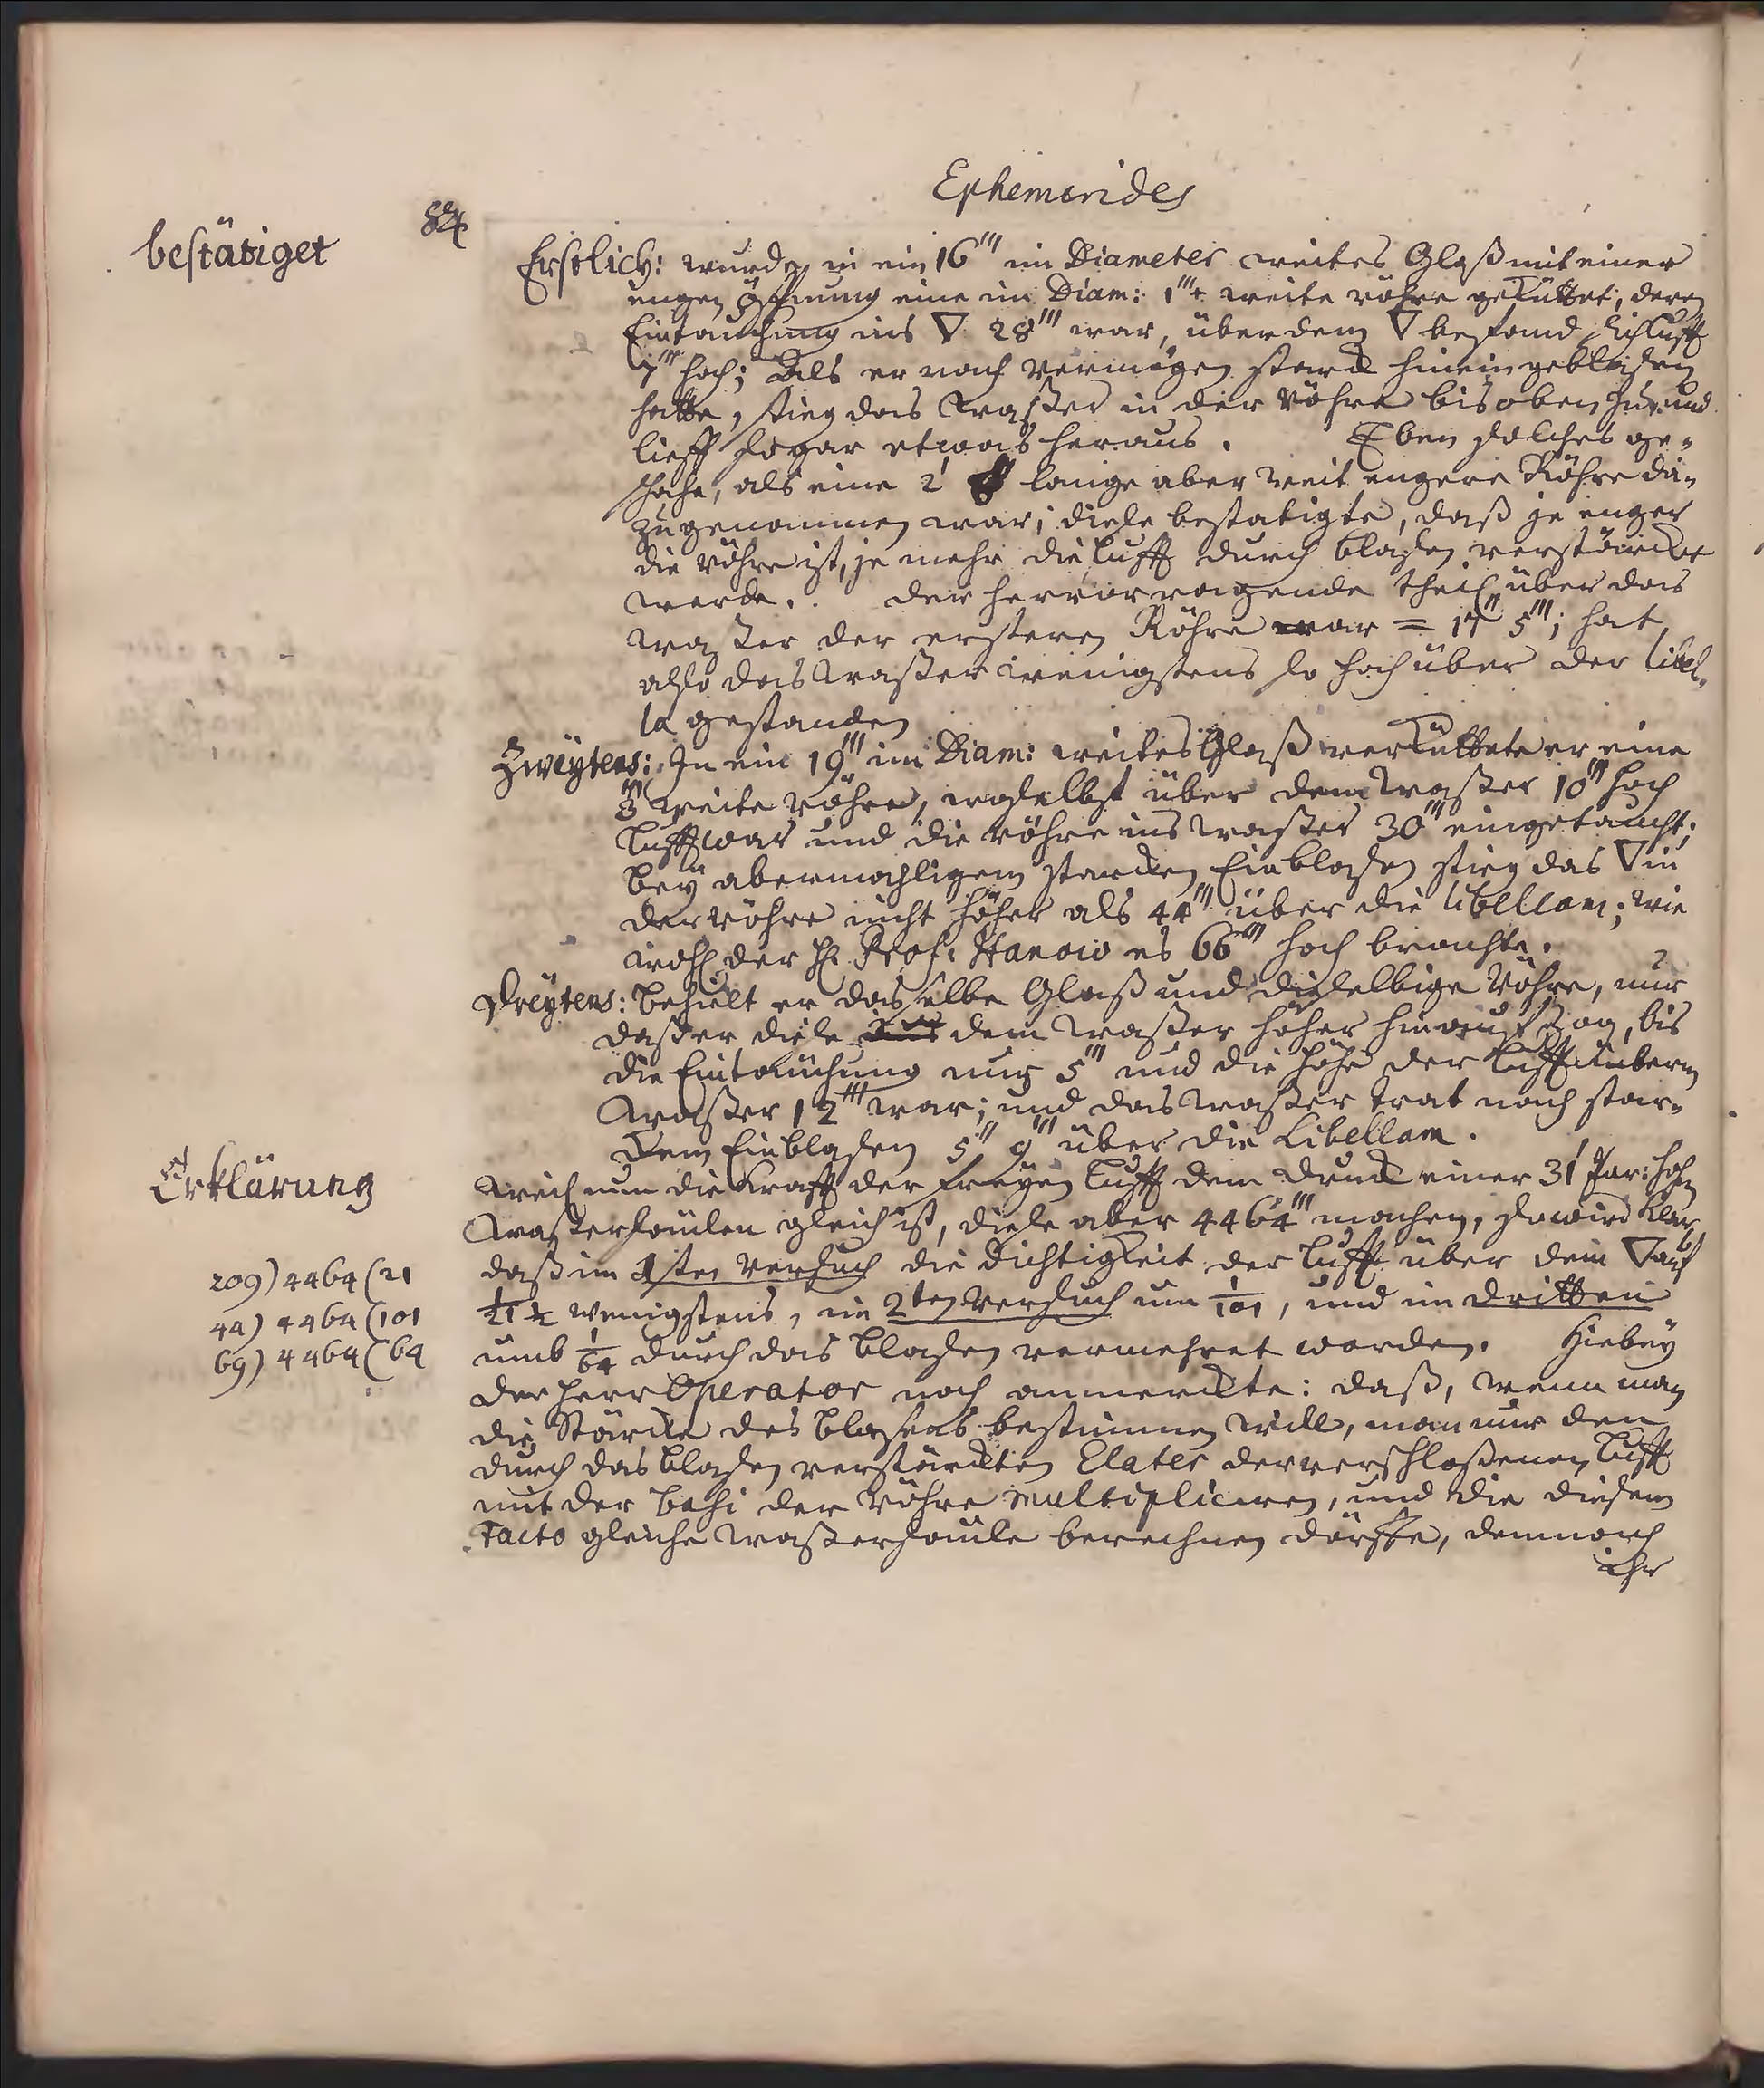 Ephemerides
bestätiget
Erstlich: wurde in ein 16''' im Diameter weites Glaß mit einer
engen Öffnung eine im Diam: 1''' weite röhre geküttet, deren
Eintauchung ins ▽ 28''' war, über dem ▽ befand sich Lufft
7''' hoch; Als er nach Vermögen starck hineingeblasen
hatte, stieg das Waßer in der Röhre bis oben zu, und
lieff sogar etwas heraus. Eben solches ge-
schahe, als eine 2' lange aber weit engere Röhre da-
zu genommen war; diese bestatigte, daß je enger
die röhre ist, je mehr die Lufft durch blasen verstärcket
werde. der hervorragende theil über das
Waßer der ersteren Röhre war = 17'' 5'''; hat
also das Waßer wenigstens so hoch über der libel-
la gestanden
Zweytens: In ein 19''' im Diam: weites Glaß verküttete er eine
3''' weite röhre, woselbst über dem Waßer 10''' hoch
Lufft war und die röhre ins Waßer 30''' eingetaucht;
bey abermahligem starcken Einblasen stieg das ▽ in
der röhre nicht höher als 44''' über die libellam; wie
wohl der H. Prof. Hanow es 66''' hoch brachte.
Dreytens: behielt er dasselbe Glaß und dieselbige Röhre, nur
daß er diese aus dem Waßer höher hinauf zog, bis
die Eintauchung nur 5''' und die Höhe der Lufft überm
Waßer 12''' war; und das Waßer trat nach star-
ckem Einblasen 5'' 9''' über die Libellam.
Erklärung
Weil nun die Krafft der freyen Lufft dem Druck einer 31' Par: hohen
Waßersäulen gleich ist, diese aber 4464''' machen, so wird klar
209) 4464 (21
daß im 1sten Versuch die Dichtigkeit der Lufft über dem ▽ auf
44) 4464 (101
1/21 wenigstens, im 2ten Versuch um 1/101, und im dritten
69) 4464 (64
umb 1/64 durch das blasen vermehret worden. Hiebey
der Herr Operator noch anmerckte: daß, wenn man
die Stärcke des blasens bestimmen will, man nur den
durch das blasen verstärckten Elater der verschloßenen Lufft
mit der basi der Röhre multipliciren, und die diesem
Facto gleiche Waßersäule berechnen dörffe, demnach
ihr